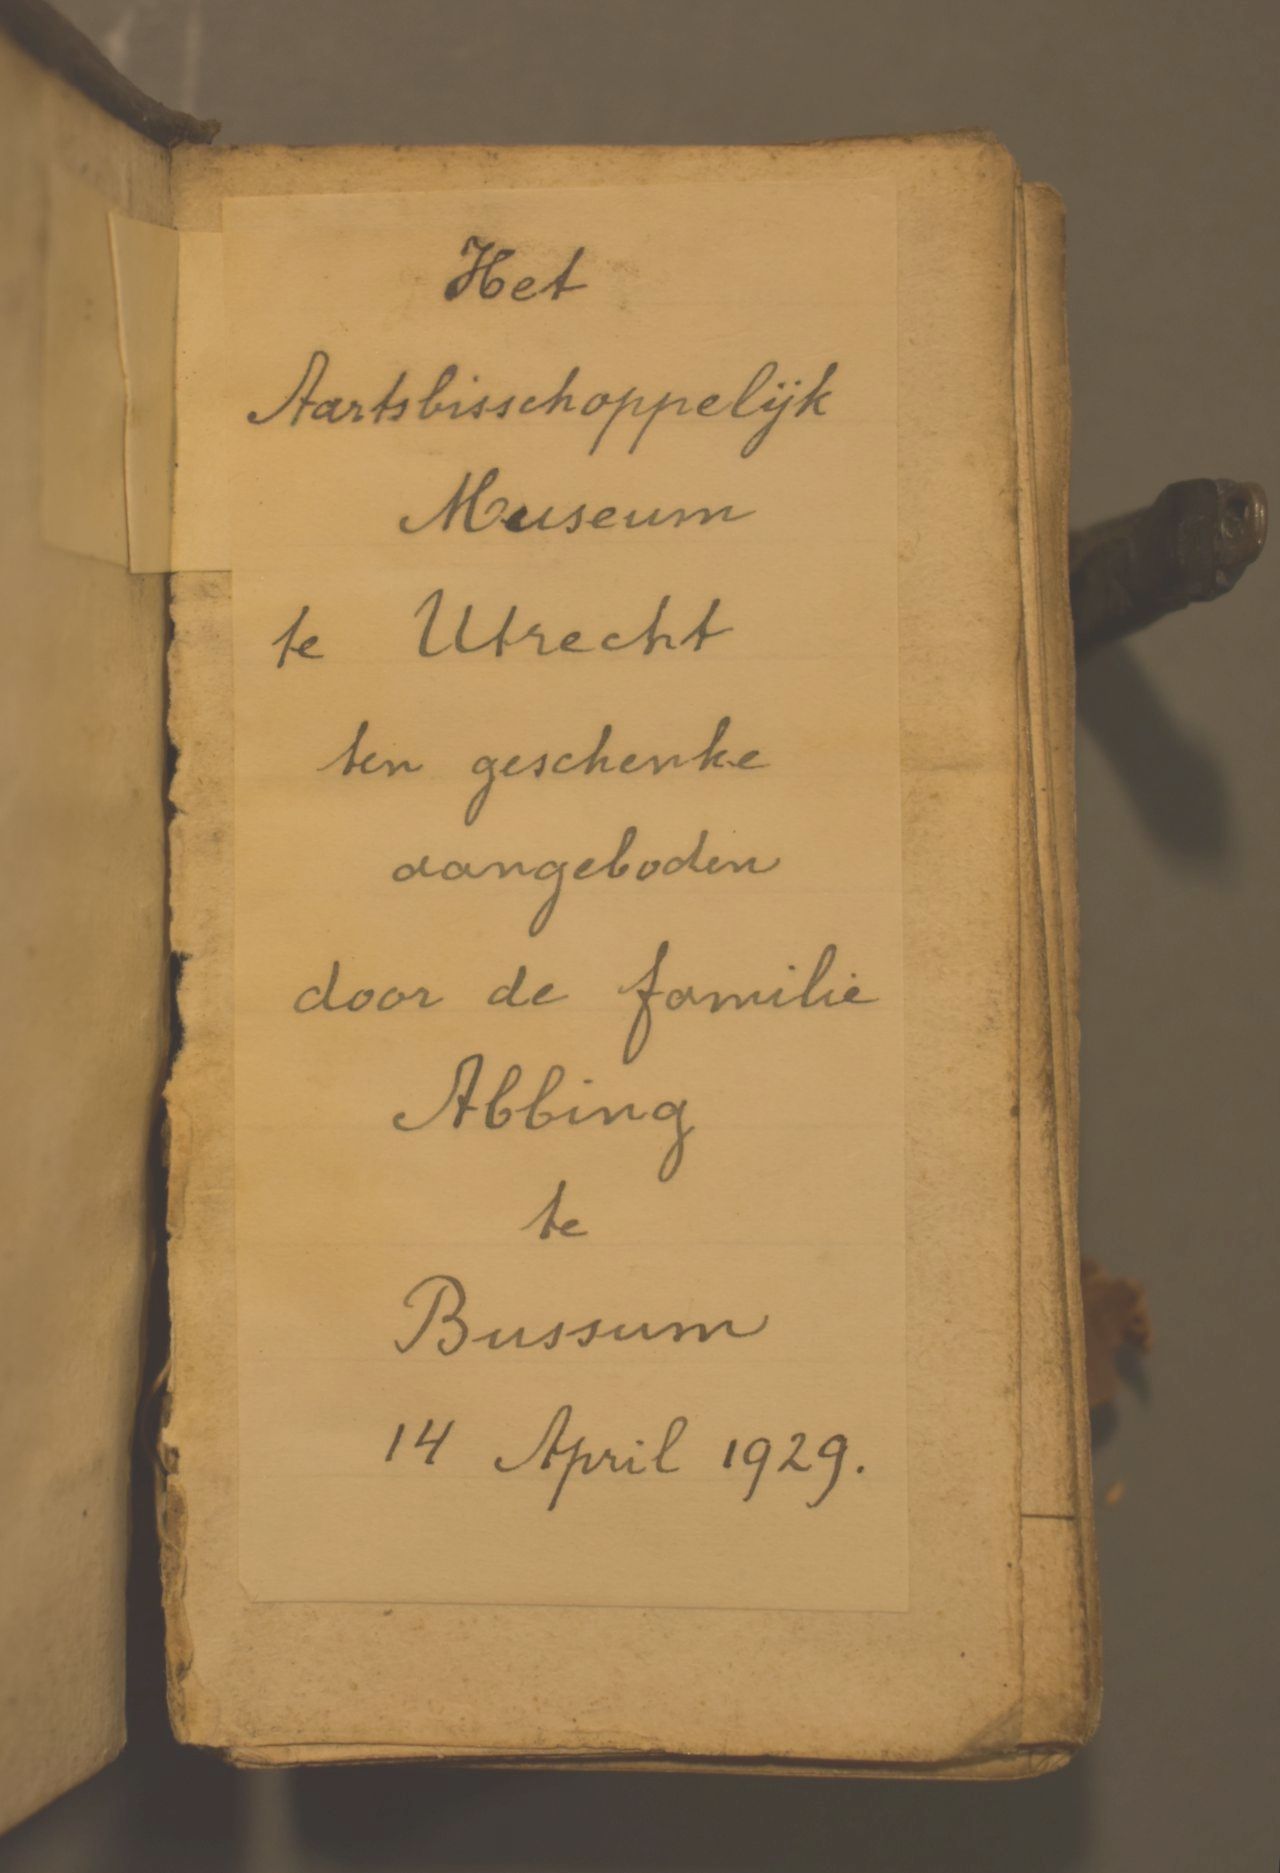 Het
Aartsbisschoppelijk
Museum
te Utrecht
ten geschenke
aangeboden
door de familie
Abbing
te
Bussum
14 April 1929.